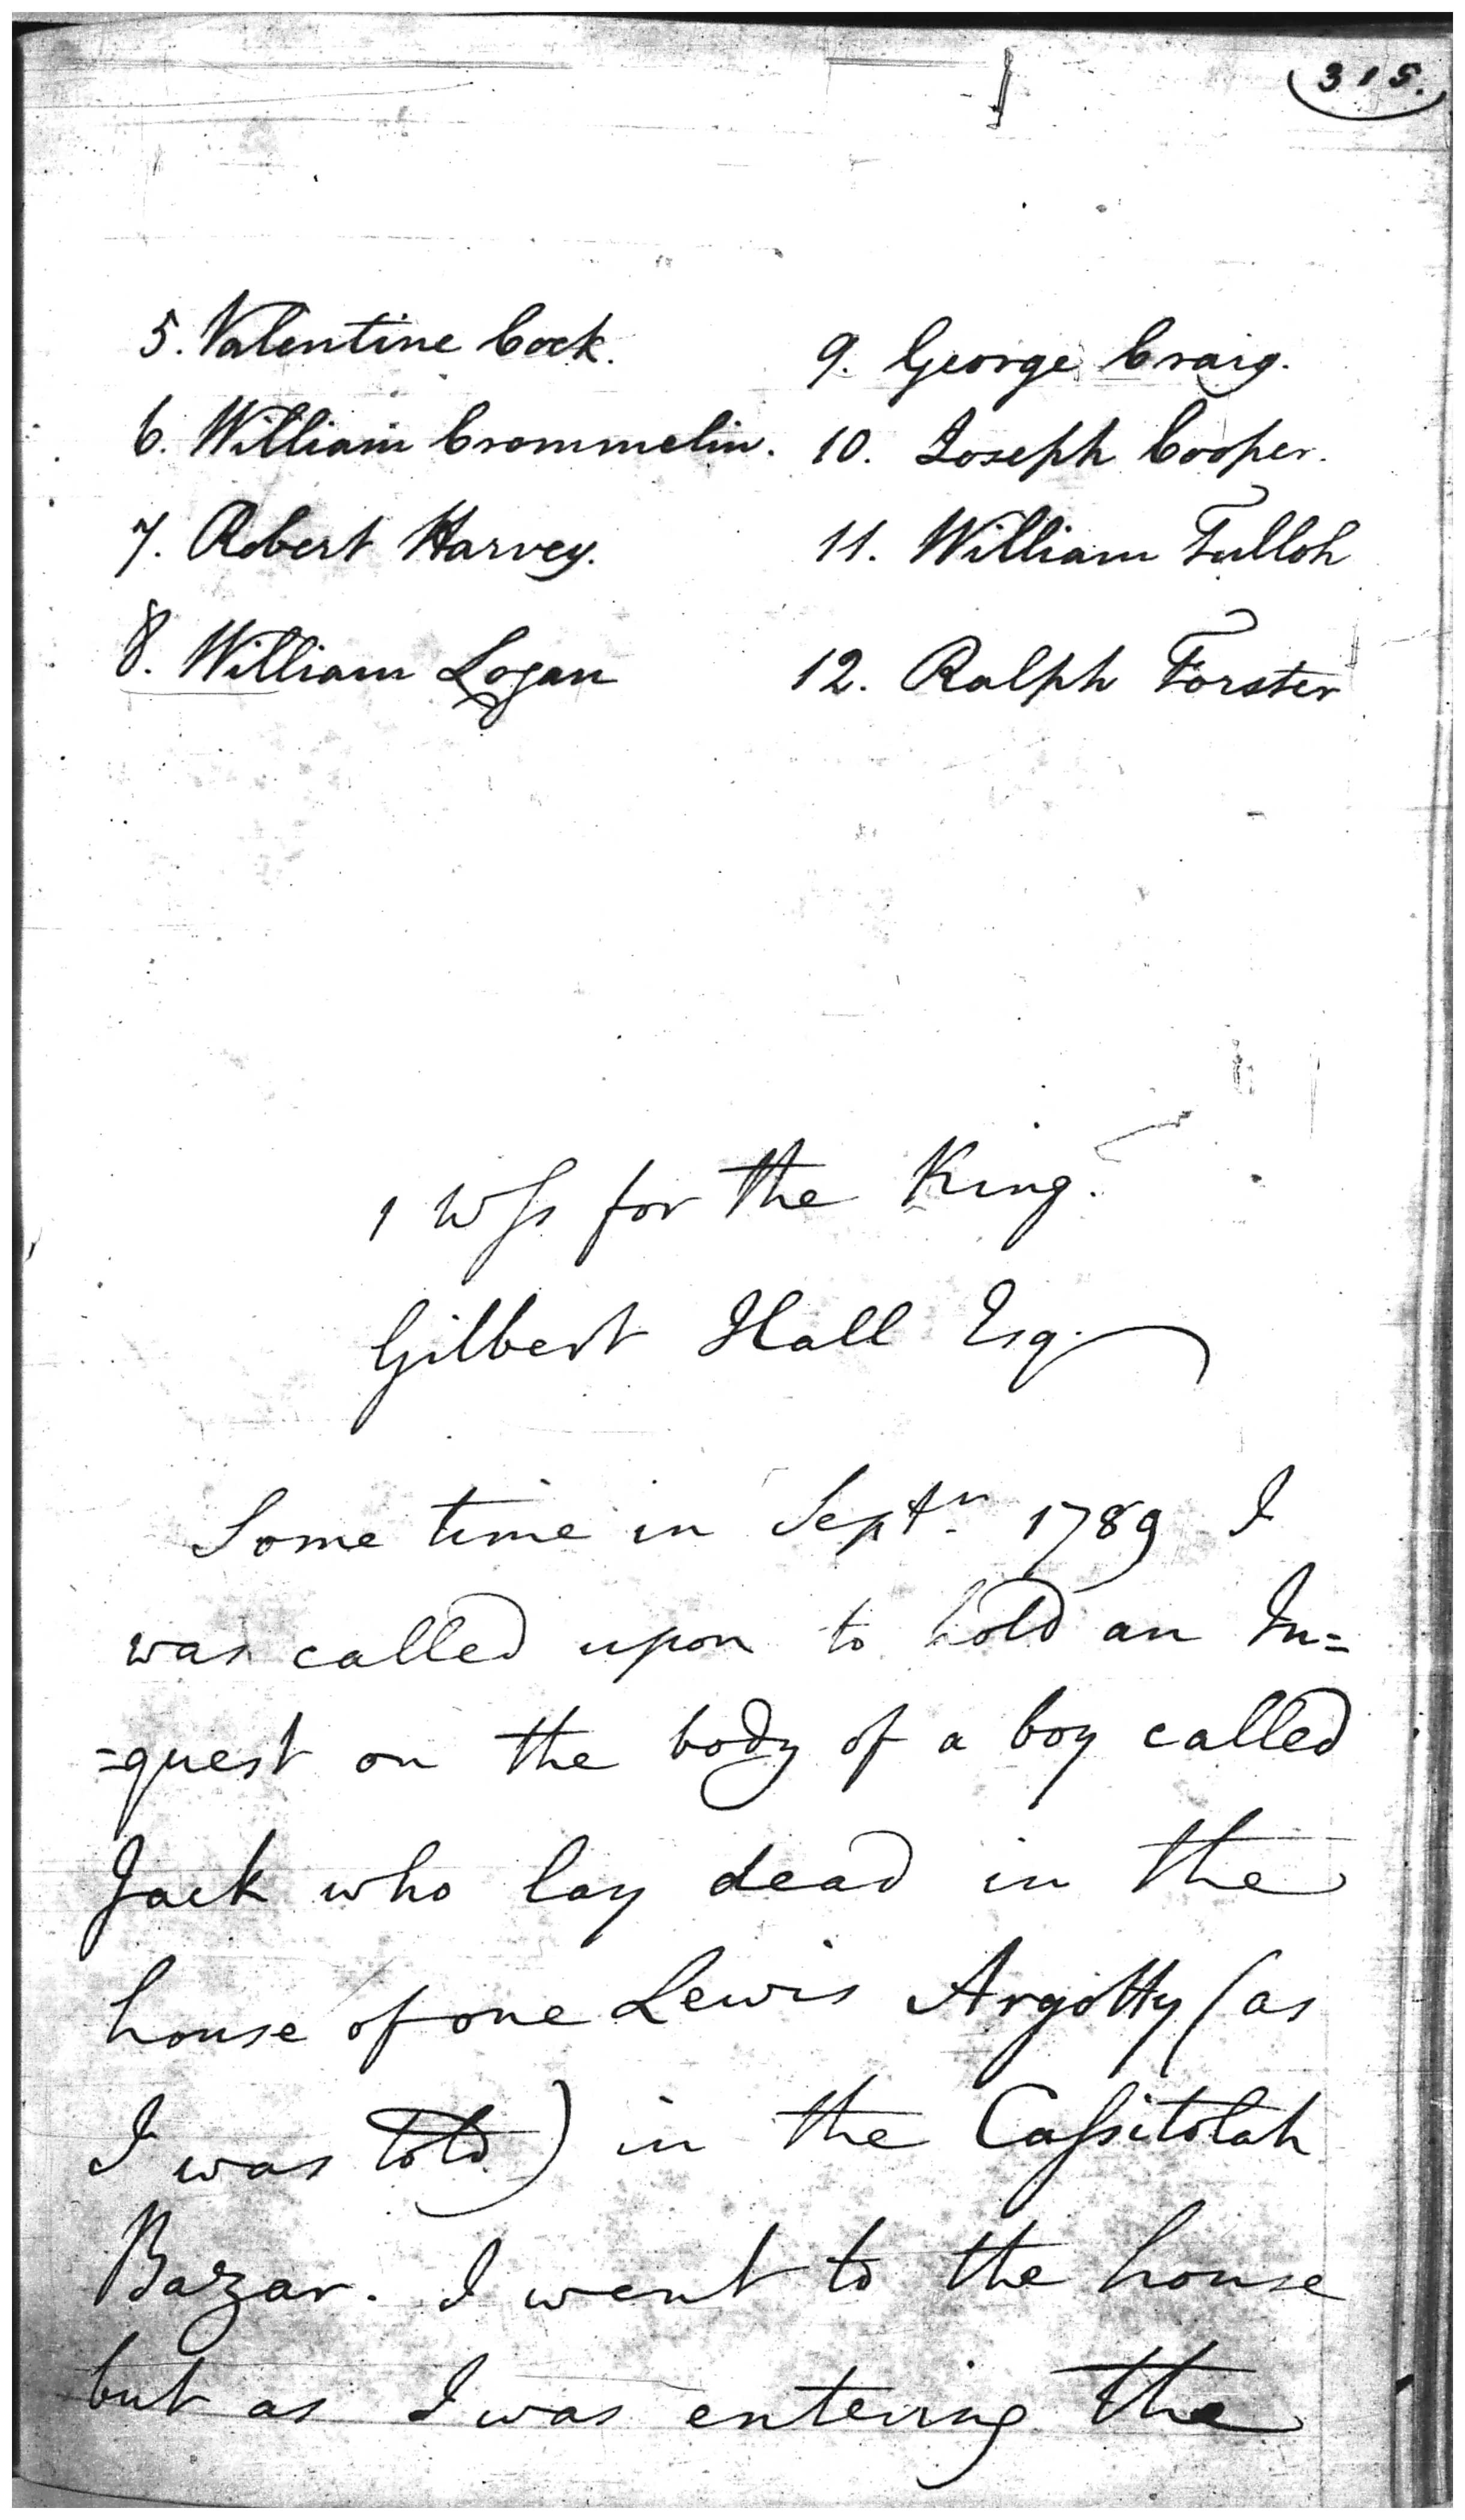 315.
5. Valentine Cock.
6. William Crommelin.
7. Robert Harvey.
8. William Logan
9. George Craig.
10. Joseph Cooper.
11. William Tulloh
12. Ralph Forster
1 Wſs for the King.
Gilbert Hall Esq.
Some time in Septr. 1789 I
was called upon to hold an In=
=quest on the body of a boy called
Jack who lay dead in the
house of one Lewis Argotty (as
I was told) in the Caſsitolah
Bazar. I went to the house
but as I was entering the